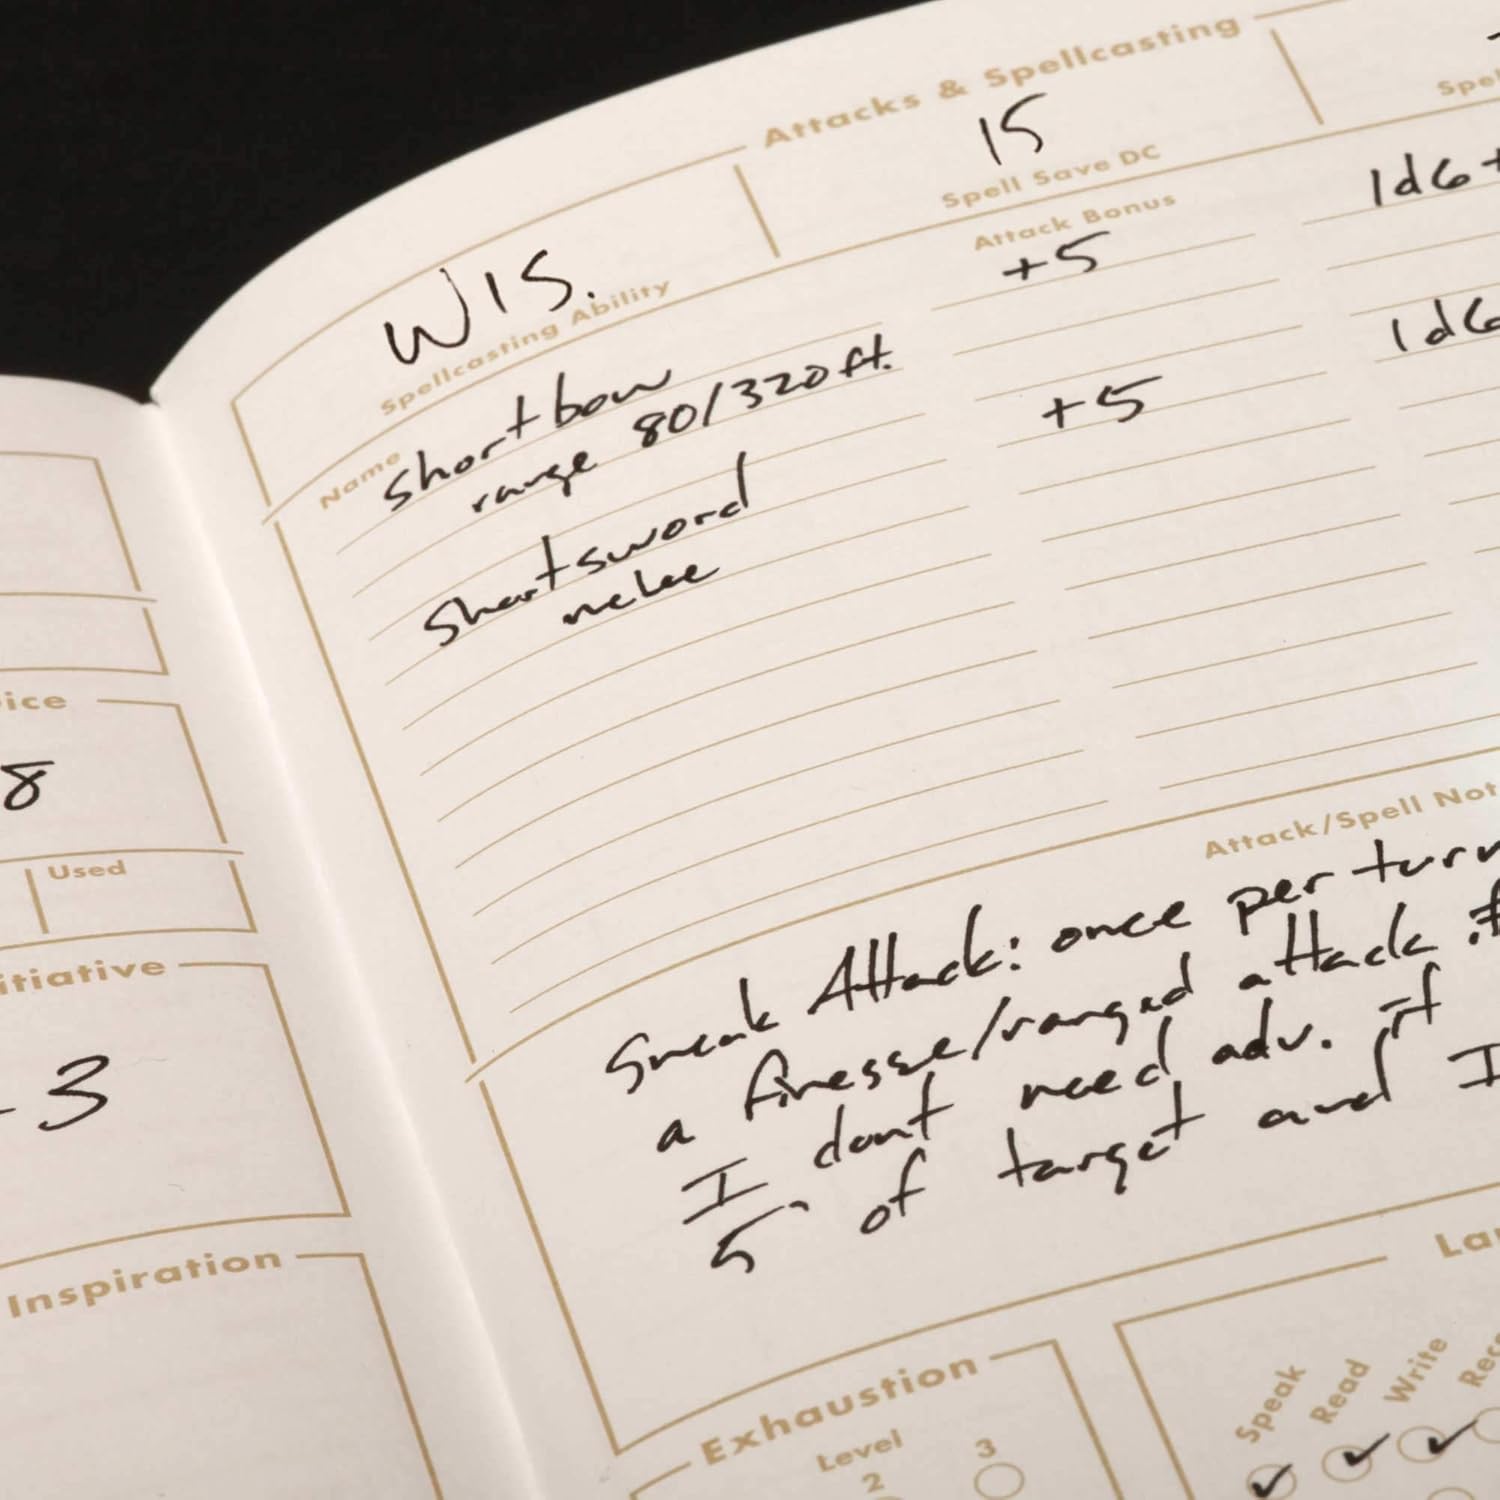 ice
8
Used
itiative
3
Inspiration
Attacks & Spellcasting
WIS.
Spellcasting Ability
15
Spell Save DC
Spel
Name
Attack Bonus
shortbow
+5
1d6+
range 80/320ft.
Shortsword
+5
1d6
melee
Attack/Spell Not
Sneak Attack: once per turn
a finesse/ranged attack if
I dont need adv. if
5' of target and I
Exhaustion
Level
2
3
La
Speak
Read
Write
Rec